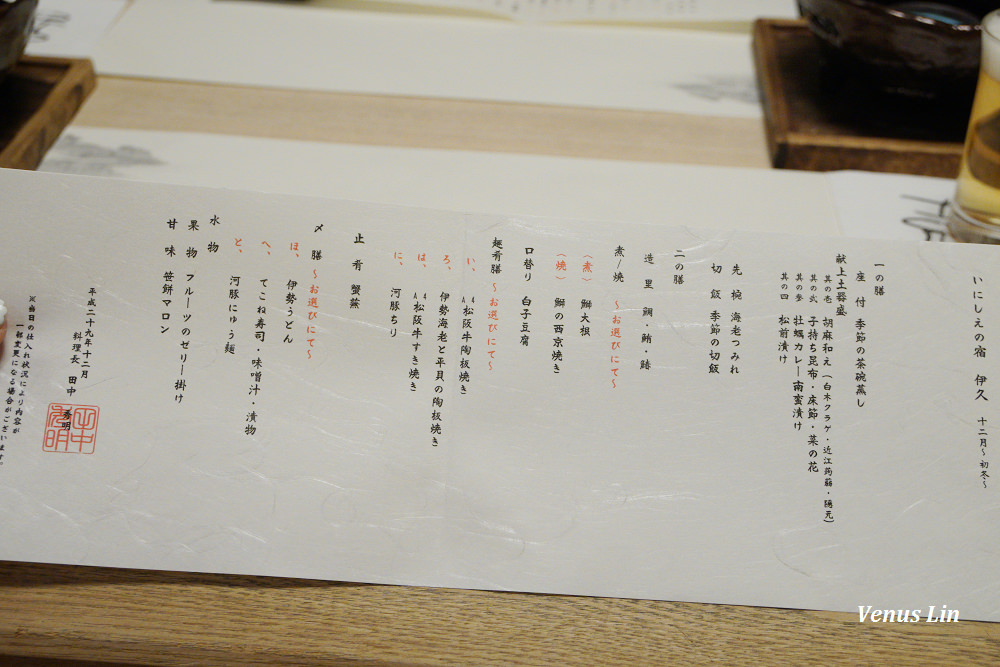 いにしえの宿　伊久　十二月〜初冬〜
一の膳
座付　季節の茶碗蒸し
献上土器盛
其の壱　胡麻和え（白木クラゲ・近江蒟蒻・隠元）
其の弐　子持ち昆布・床節・菜の花
其の参　牡蠣カレー南蛮漬け
其の四　松前漬け
先椀　海老つみれ
切飯　季節の切飯
二の膳
造里　鯛・鮪・鰆
煮/焼　〜お選びにて〜
〈煮〉　鰤大根
〈焼〉　鰤の西京焼き
口替り　白子豆腐
麺肴膳　〜お選びにて〜
い、A4松阪牛陶板焼き
ろ、伊勢海老と平貝の陶板焼き
は、A4松阪牛すき焼き
に、河豚ちり
止肴　蟹蕪
〆膳　〜お選びにて〜
ほ、伊勢うどん
へ、てこね寿司・味噌汁・漬物
と、河豚にゅう麺
水物
果物　フルーツのゼリー掛け
甘味　笹餅マロン
平成二十九年十二月
料理長　田中　秀明
※当日の仕入れ状況により内容が
一部変更になる場合がございます。
Venus Lin